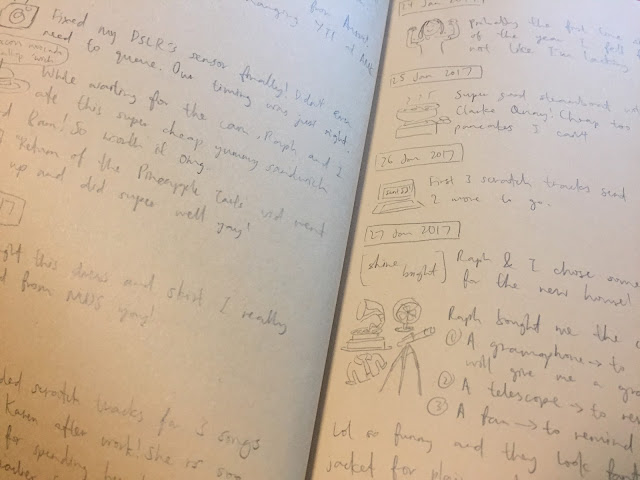 from
changing YTT
Fixed my DSLR's sensor finally! Didn't even
need to queue. Our timing was just right.
While waiting for the cam, Raph and I
ate this super cheap yummy sandwich
Ram! So worth it omg.
Return of the Pineapple Tarts vid went
up and did super well yay!
17
this dress and skirt I really
from MDS yay!
scratch tracks for 3 songs
Karen after work! She is soo
for spending
24 Jan
Probably the first time
of the year I fell
not like I'm lacking
25 Jan 2017
Super good steamboat
Clarke Quay! Cheap too
pancakes I can't
26 Jan 2017
sent!!!
First 3 scratch tracks send
2 more to go.
27 Jan 2017
shine bright
Raph & I chose some
for the new home!
Raph bought me the
① A gramophone → to
will give me a
② A telescope → to
③ A fan → to remind
Lol so funny and they look
jacket for